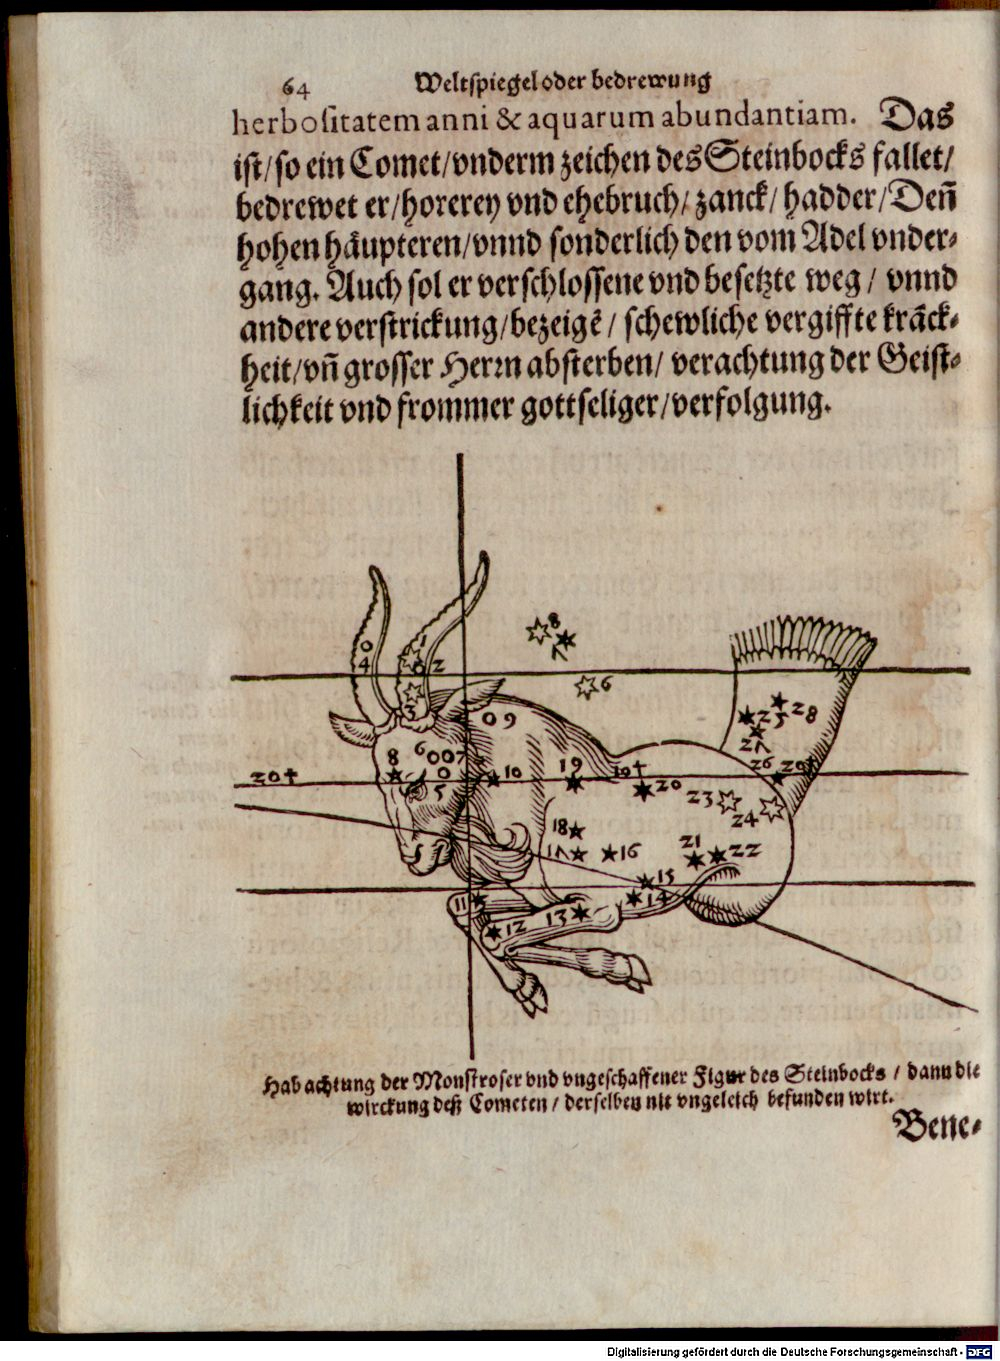 64 Weltspiegel oder bedrewung
herbositatem anni & aquarum abundantiam. Das
ist/ so ein Comet/ vnderm zeichen des Steinbocks fallet/
bedrewet er/ horerey vnd ehebruch/ zanck/ hadder/ Deñ
hohen häupteren/ vnnd sonderlich den vom Adel vnder-
gang. Auch sol er verschlossene vnd besetzte weg / vnnd
andere verstrickung/ bezeigẽ / schewliche vergiffte kräck-
heit/ vñ grosser Herrn absterben/ verachtung der Geist-
lichkeit vnd frommer gottseliger/ verfolgung.
8
7
0
4
1
0 2
3
6
0 9
8
6
0 0 7
0
5
10
19
10†
20
20†
25
28
27
26
29†
23
24
18
17
16
21
22
15
14
11
12
13
Hab achtung der Monstroser vnd vngeschaffener Figur des Steinbocks / dann die
wirckung deß Cometen / derselben nit vngeleich befunden wirt.
Bene-
Digitalisierung gefördert durch die Deutsche Forschungsgemeinschaft - DFG